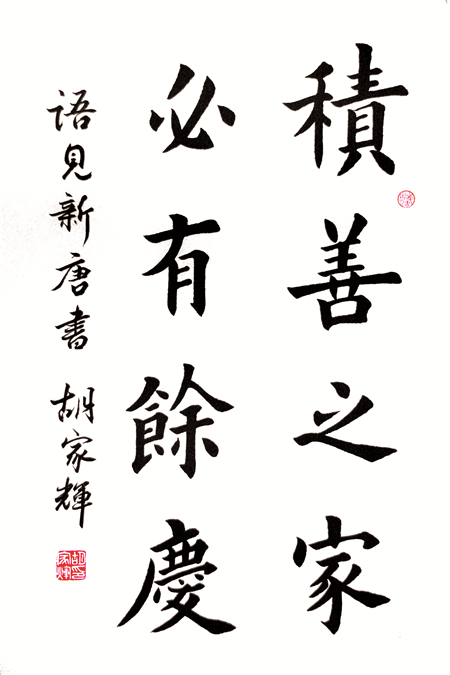 積善之家
必有餘慶
語見新唐書 胡家輝